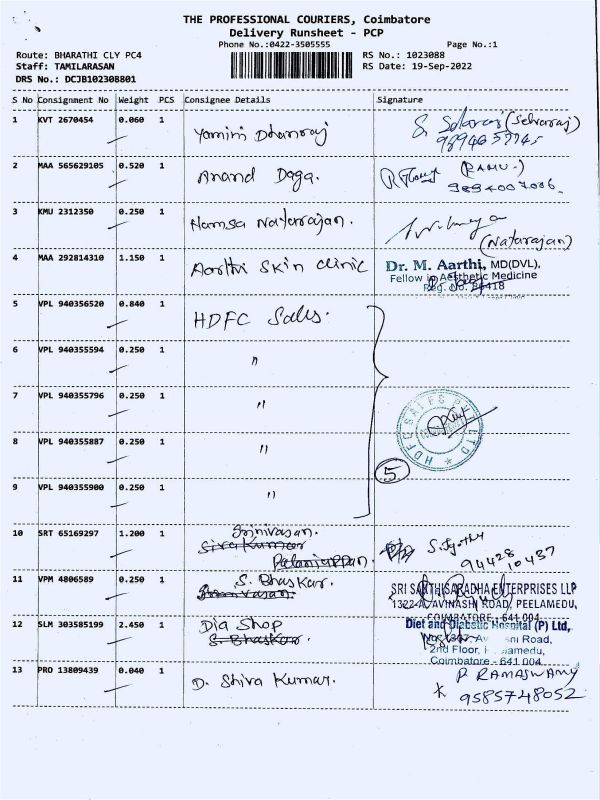 THE PROFESSIONAL COURIERS, Coimbatore
Delivery Runsheet - PCP
Phone No.:0422-3505555 Page No.:1
Route: BHARATHI CLY PC4 RS No.: 1023088
Staff: TAMILARASAN RS Date: 19-Sep-2022
DRS No.: DCJB102308801
S No Consignment No Weight PCS Consignee Details Signature
1 KVT 2670454 0.060 1 Yamini Dhanraj (Selvaraj)
2 MAA 565629105 0.520 1 Anand Daga. (RAMU-)
9894007006.
3 KMU 2312350 0.250 1 Hamsa Natarajan.
(Natarajan)
4 MAA 292814310 1.150 1 Aarthi Skin clinic Dr. M. Aarthi, MD(DVL),
Fellow in Aesthetic Medicine
Reg. No. 86418
5 VPL 940356520 0.840 1 HDFC Sales.
6 VPL 940355594 0.250 1 "
7 VPL 940355796 0.250 1 "
HDFC SALES PVT LTD
8 VPL 940355887 0.250 1 "
5
9 VPL 940355900 0.250 1 "
10 SRT 65169297 1.200 1 Srinivasan.
Siva Kumar
Palaniappan.
94428 10437
11 VPM 4806589 0.250 1 S. Bhaskar.
SRI SAKTHI SARADHA ENTERPRISES LLP
1322-A, AVINASHI ROAD, PEELAMEDU,
COIMBATORE - 641 004
12 SLM 303585199 2.450 1 Dia Shop
S. Bhaskar.
Diet and Diabetic Hospital (P) Ltd,
2nd Floor,
Coimbatore - 641 004
13 PRO 13809439 0.040 1 D. Shiva Kumar. P RAMASWAMY
9585748052